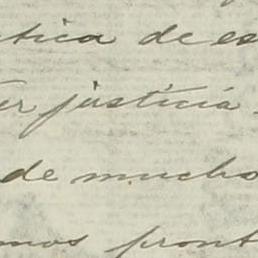 tica de es
er justicia.
de mucho
mos pront